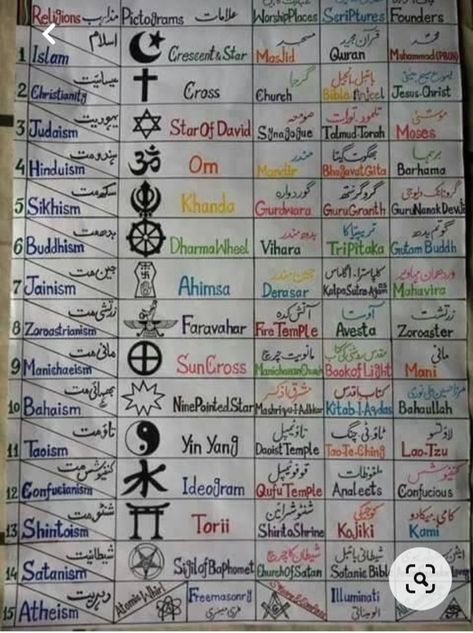 Religions مذاہب Pictograms علامات WorshipPlaces ScriPtures Founders
1 Islam اسلام Crescent & Star مسجد Masjid قرآن مجید Quran محمد Muhammad (PBUH)
2 Christianity عیسائیت Cross گرجا Church بائبل انجیل Bible Anjeel یسوع مسیح Jesus Christ
3 Judaism یہودیت Star Of David صومعہ Synagogue تلمود۔تورات Talmud-Torah موسیٰ Moses
4 Hinduism ہندومت Om مندر Mandir بھگوت گیتا Bhagavat Gita برہما Barhama
5 Sikhism سکھ مت Khanda گوردوارہ Gurdwara گروگرنتھ Guru Granth گرونانک دیوجی Guru Nanak Devji
6 Buddhism بدھ مت Dharma Wheel بدھ مندر Vihara تری پیتاکا TriPitaka گوتم بدھ Gutam Buddh
7 Jainism جین مت Ahimsa جین مندر Derasar کلپاسترا۔اگاماس Kalpa Sutra-Agam وردھمان مہاویر Mahavira
8 Zoroastrianism زرتشی مت Faravahar آتش کدہ Fire Temple اوستا Avesta زرتشت Zoroaster
9 Manichaeism مانی مت Sun Cross مانویت چرچ Manichaean Church مقدس روشنی کی کتاب Book of Light مانی Mani
10 Bahaism بھائی مت Nine Pointed Star مشرق اذکر Mashriqu-l-Adhkar کتاب اقدس Kitab I Aqdas Bahaullah
11 Taoism تاؤ مت Yin Yang تاؤ ٹیمپل Daoist Temple تاؤ تی چنگ Tao-Te-Ching لاؤ تسو Lao-Tzu
12 Confucianism کنفیوشس مت Ideogram قوفو ٹیمپل Qufu Temple ملفوظات Analects کنفیوشس Confucious
13 Shintoism شنٹو مت Torii شنٹو شرائین Shinto Shrine کوجیکی Kojiki کامی۔میکادو Kami
14 Satanism شیطانیت Sijil of Baphomet شیطان کا چرچ Church Of Satan شیطانی بائبل Satanic Bibl
15 Atheism دہریت Atomic Whirl Freemasonry فری میسری Illuminati الومیناتی